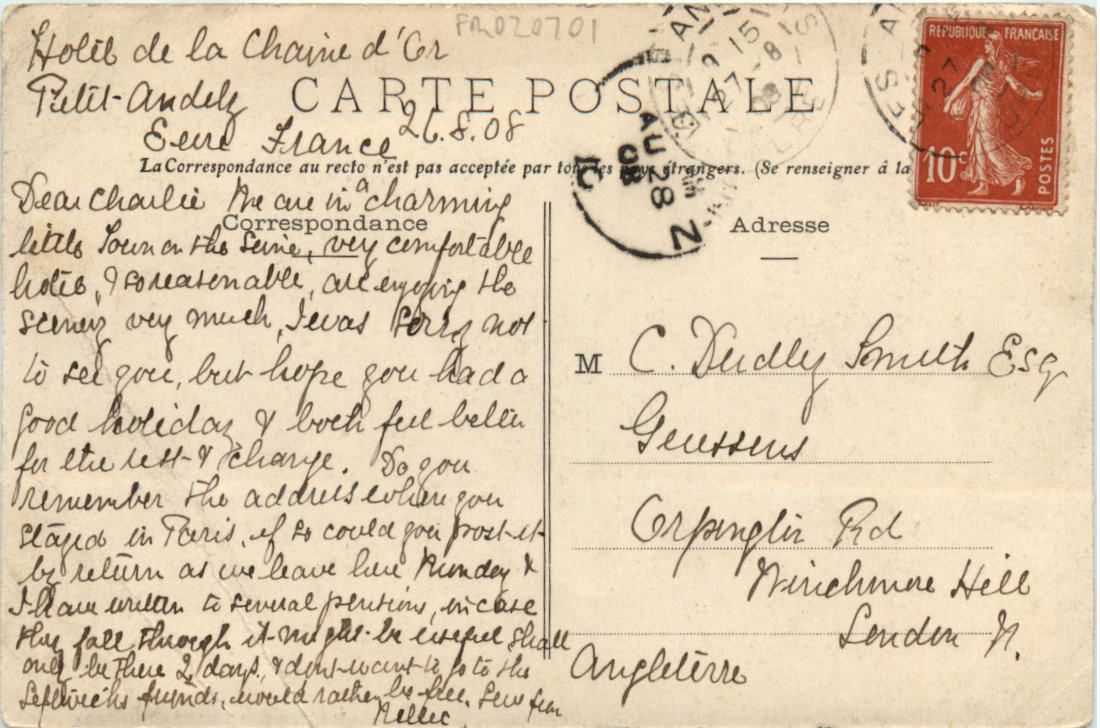 FR020701
Hotel de la Chaine d'Or
Petit-Andely
Eure France 26.8.08
CARTE POSTALE
La Correspondance au recto n'est pas acceptée par tous les pays étrangers. (Se renseigner à la
REPUBLIQUE FRANÇAISE
10c
POSTES
AU 28
08
Correspondance
Adresse
Dear Charlie We are in a charming
little Town on the Seine, very comfortable
hotel, & so reasonable, are enjoying the
scenery very much, I was sorry not
to see you, but hope you had a
good holiday & both feel better
for the rest & change. Do you
remember the address where you
stayed in Paris, if so could you post it
by return as we leave here Monday &
I have written to several pensions, in case
they fall through it might be useful shall
only be there 2 days, & dont want to go to the
friends, would rather be free.
Nellie
M C. Dudley Smith Esq
Genssens
Orpington Rd
Winchmore Hill
London N.
Angleterre